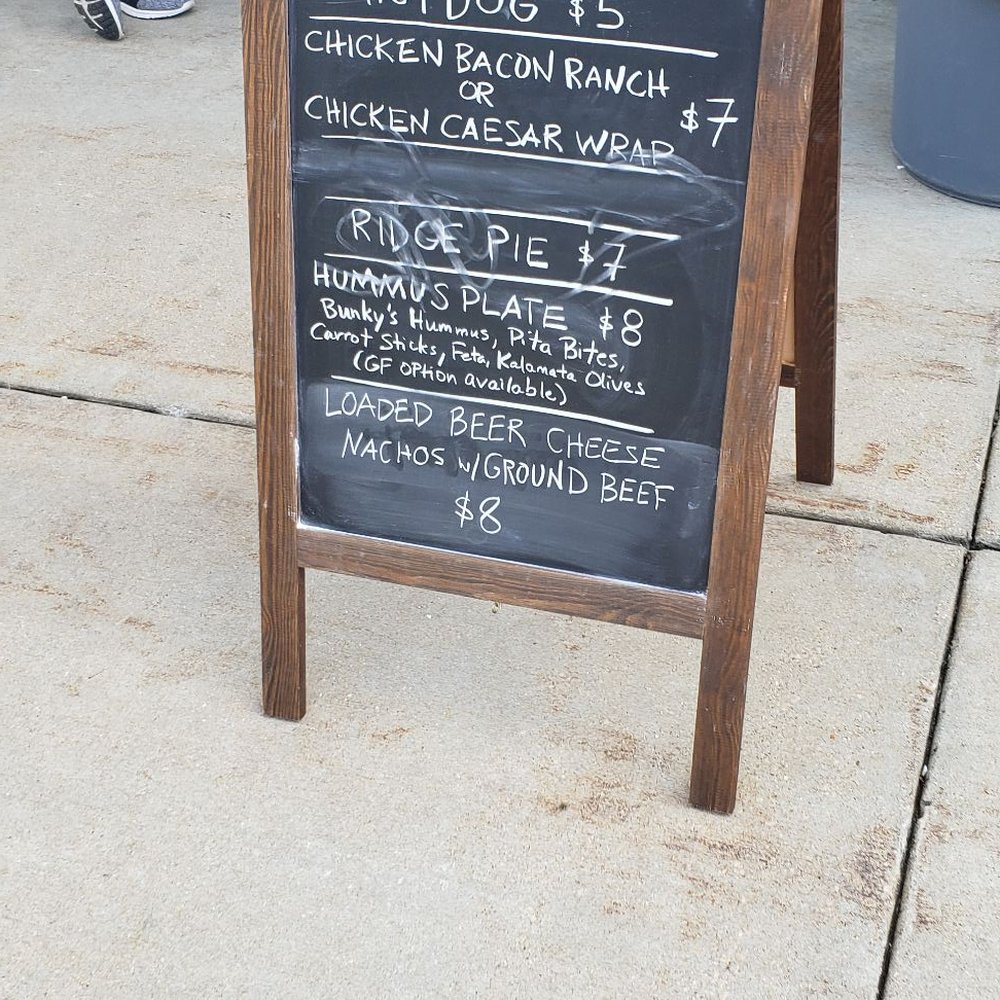 HOT DOG $5
CHICKEN BACON RANCH
OR
CHICKEN CAESAR WRAP $7
RIDGE PIE $7
HUMMUS PLATE $8
Bunky's Hummus, Pita Bites,
Carrot Sticks, Feta, Kalamata Olives
(GF option available)
LOADED BEER CHEESE
NACHOS w/GROUND BEEF
$8